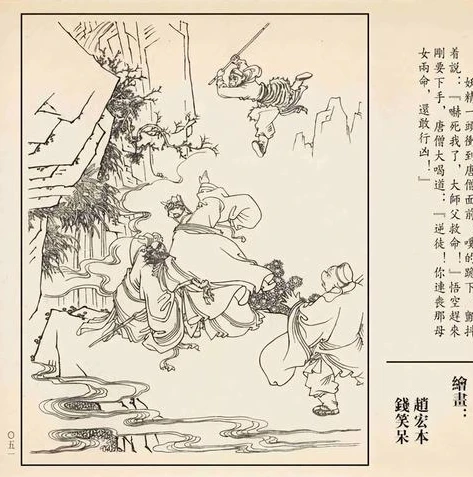 妖精一頭衝到唐僧面前，噗的跪下，顫抖
着説：『嚇死我了，大師父救命！』悟空趕來
剛要下手，唐僧大喝道：『逆徒！你連喪那母
女兩命，還敢行凶！』
繪畫：
趙宏本
錢笑呆
〇五一